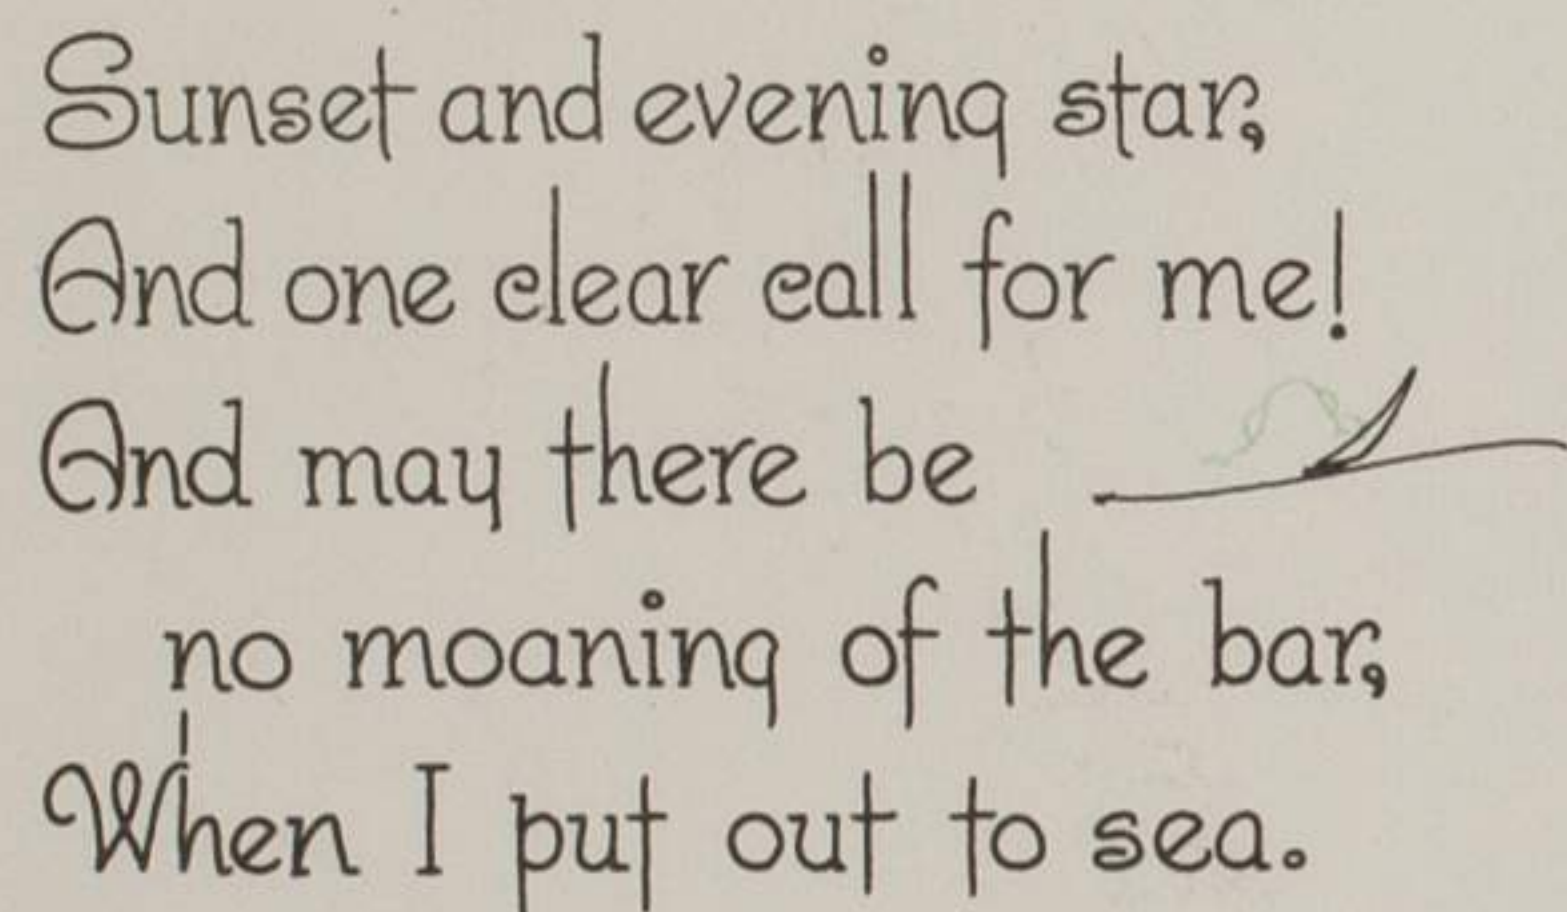 Sunset and evening star,
And one clear call for me!
And may there be
no moaning of the bar,
When I put out to sea.